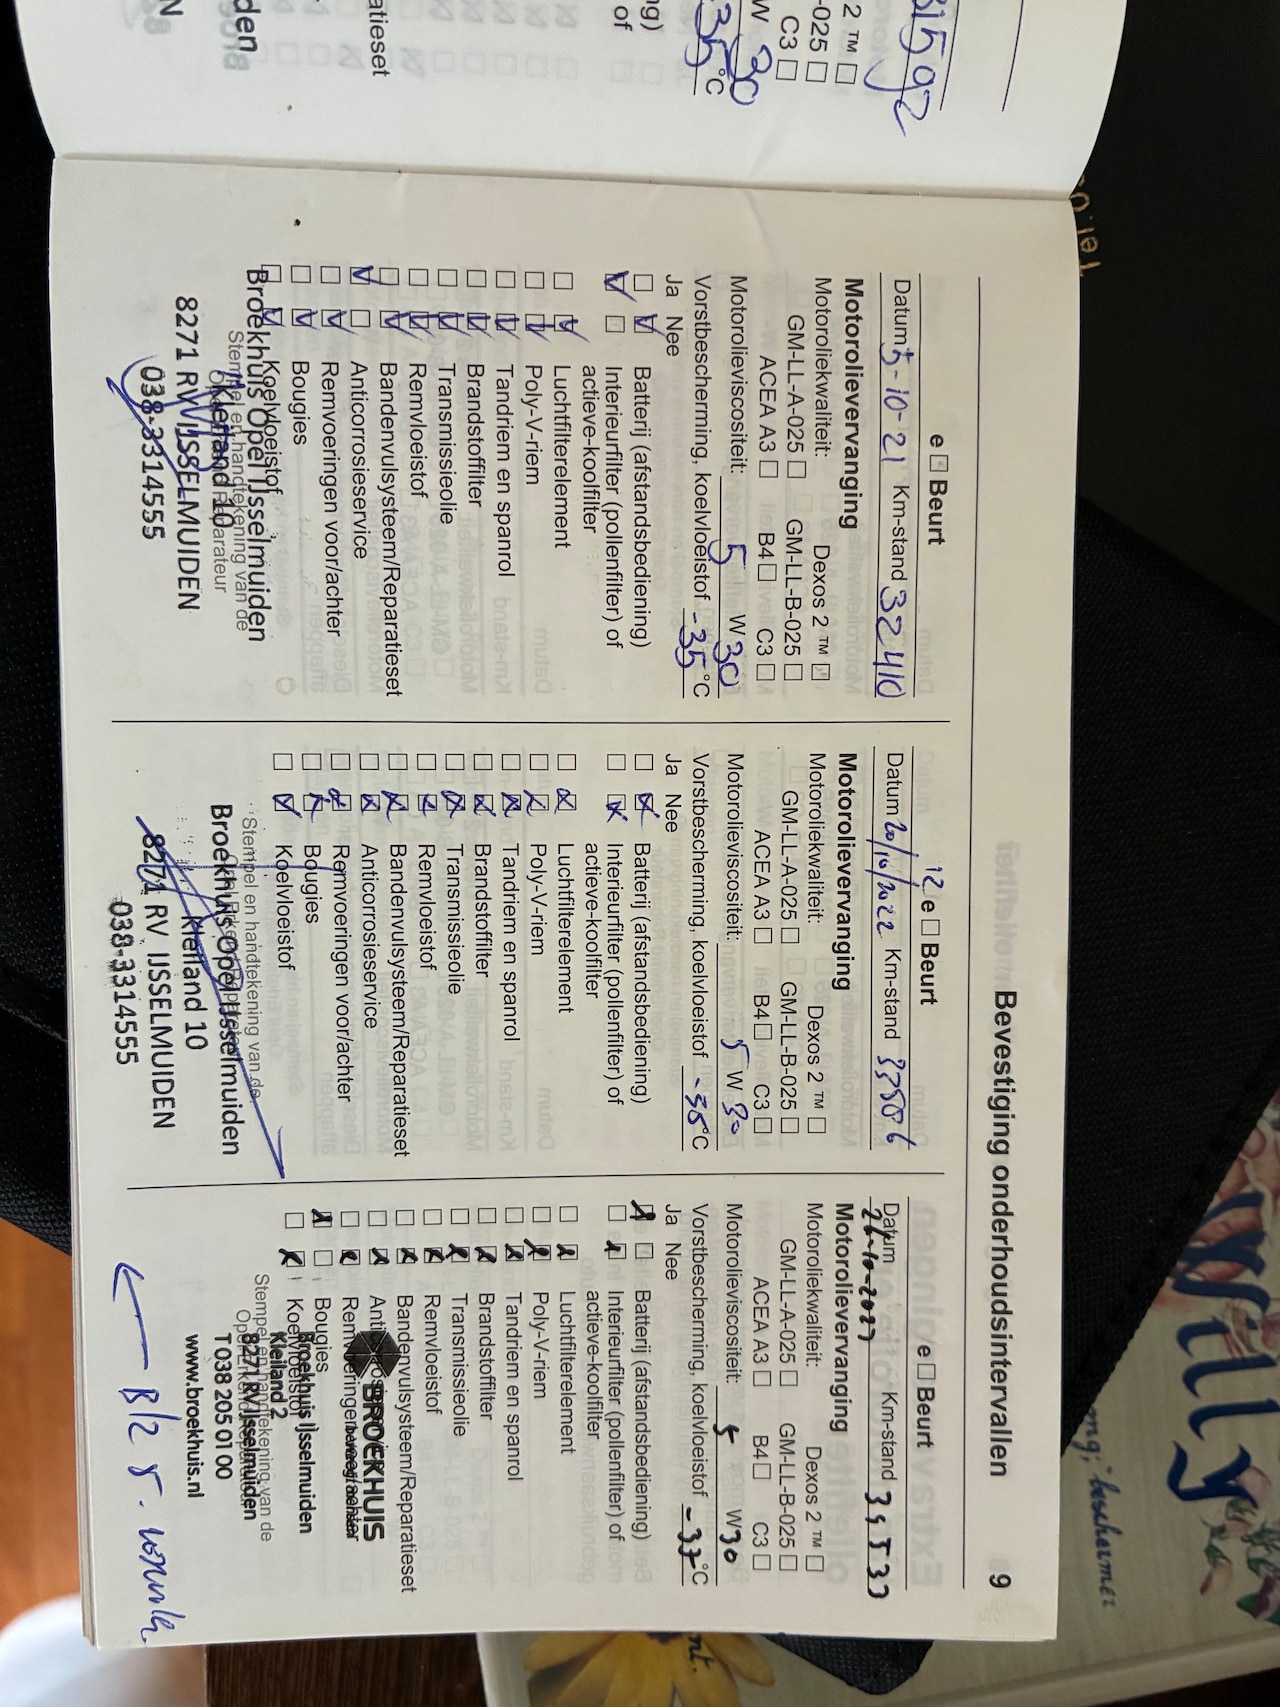 31592
2 ™ ☐
-025 ☐
C3 ☐
W 30
-35 °C
ng)
of
atieset
den
N
Bevestiging onderhoudsintervallen 9
e ☐ Beurt
Datum 5-10-21 Km-stand 32410
Motorolievervanging
Motoroliekwaliteit: Dexos 2 ™ ☐
GM-LL-A-025 ☐ GM-LL-B-025 ☐
ACEA A3 ☐ B4 ☐ C3 ☐
Motorolieviscositeit: 5 W 30
Vorstbescherming, koelvloeistof -35 °C
Ja Nee
☐ ☑ Batterij (afstandsbediening)
☑ ☐ Interieurfilter (pollenfilter) of
actieve-koolfilter
☐ ☑ Luchtfilterelement
☐ ☑ Poly-V-riem
☐ ☑ Tandriem en spanrol
☐ ☑ Brandstoffilter
☐ ☑ Transmissieolie
☐ ☑ Remvloeistof
☐ ☑ Bandenvulsysteem/Reparatieset
☑ ☐ Anticorrosieservice
☐ ☑ Remvoeringen voor/achter
☐ ☑ Bougies
☐ ☑ Koelvloeistof
Stempel en handtekening van de
Reparateur
Broekhuis Opel IJsselmuiden
Kleiland 10
8271 RV IJSSELMUIDEN
038-3314555
12 e ☐ Beurt
Datum 20/10/2022 Km-stand 33506
Motorolievervanging
Motoroliekwaliteit: Dexos 2 ™ ☐
GM-LL-A-025 ☐ GM-LL-B-025 ☐
ACEA A3 ☐ B4 ☐ C3 ☐
Motorolieviscositeit: 5 W 30
Vorstbescherming, koelvloeistof -35 °C
Ja Nee
☐ ☒ Batterij (afstandsbediening)
☐ ☒ Interieurfilter (pollenfilter) of
actieve-koolfilter
☐ ☒ Luchtfilterelement
☐ ☒ Poly-V-riem
☐ ☒ Tandriem en spanrol
☐ ☒ Brandstoffilter
☐ ☒ Transmissieolie
☐ ☒ Remvloeistof
☐ ☒ Bandenvulsysteem/Reparatieset
☐ ☒ Anticorrosieservice
☐ ☒ Remvoeringen voor/achter
☐ ☒ Bougies
☐ ☒ Koelvloeistof
Stempel en handtekening van de
Broekhuis Opel IJsselmuiden
Kleiland 10
8271 RV IJSSELMUIDEN
038-3314555
e ☐ Beurt
Datum Km-stand 34533
Motorolievervanging
Motoroliekwaliteit: Dexos 2 ™ ☐
GM-LL-A-025 ☐ GM-LL-B-025 ☐
ACEA A3 ☐ B4 ☐ C3 ☐
Motorolieviscositeit: 5 W 30
Vorstbescherming, koelvloeistof -37 °C
Ja Nee
☒ ☐ Batterij (afstandsbediening)
☐ ☒ Interieurfilter (pollenfilter) of
actieve-koolfilter
☐ ☒ Luchtfilterelement
☐ ☒ Poly-V-riem
☐ ☒ Tandriem en spanrol
☐ ☒ Brandstoffilter
☐ ☒ Transmissieolie
☐ ☒ Remvloeistof
☐ ☒ Bandenvulsysteem/Reparatieset
☐ ☒ Anticorrosieservice
☐ ☒ Remvoeringen voor/achter
☒ ☐ Bougies
☐ ☒ Koelvloeistof
Stempel en handtekening van de
BROEKHUIS
Broekhuis IJsselmuiden
Kleiland 2
8271 RV IJsselmuiden
T 038 205 01 00
www.broekhuis.nl
Willy
beschermer
nt.